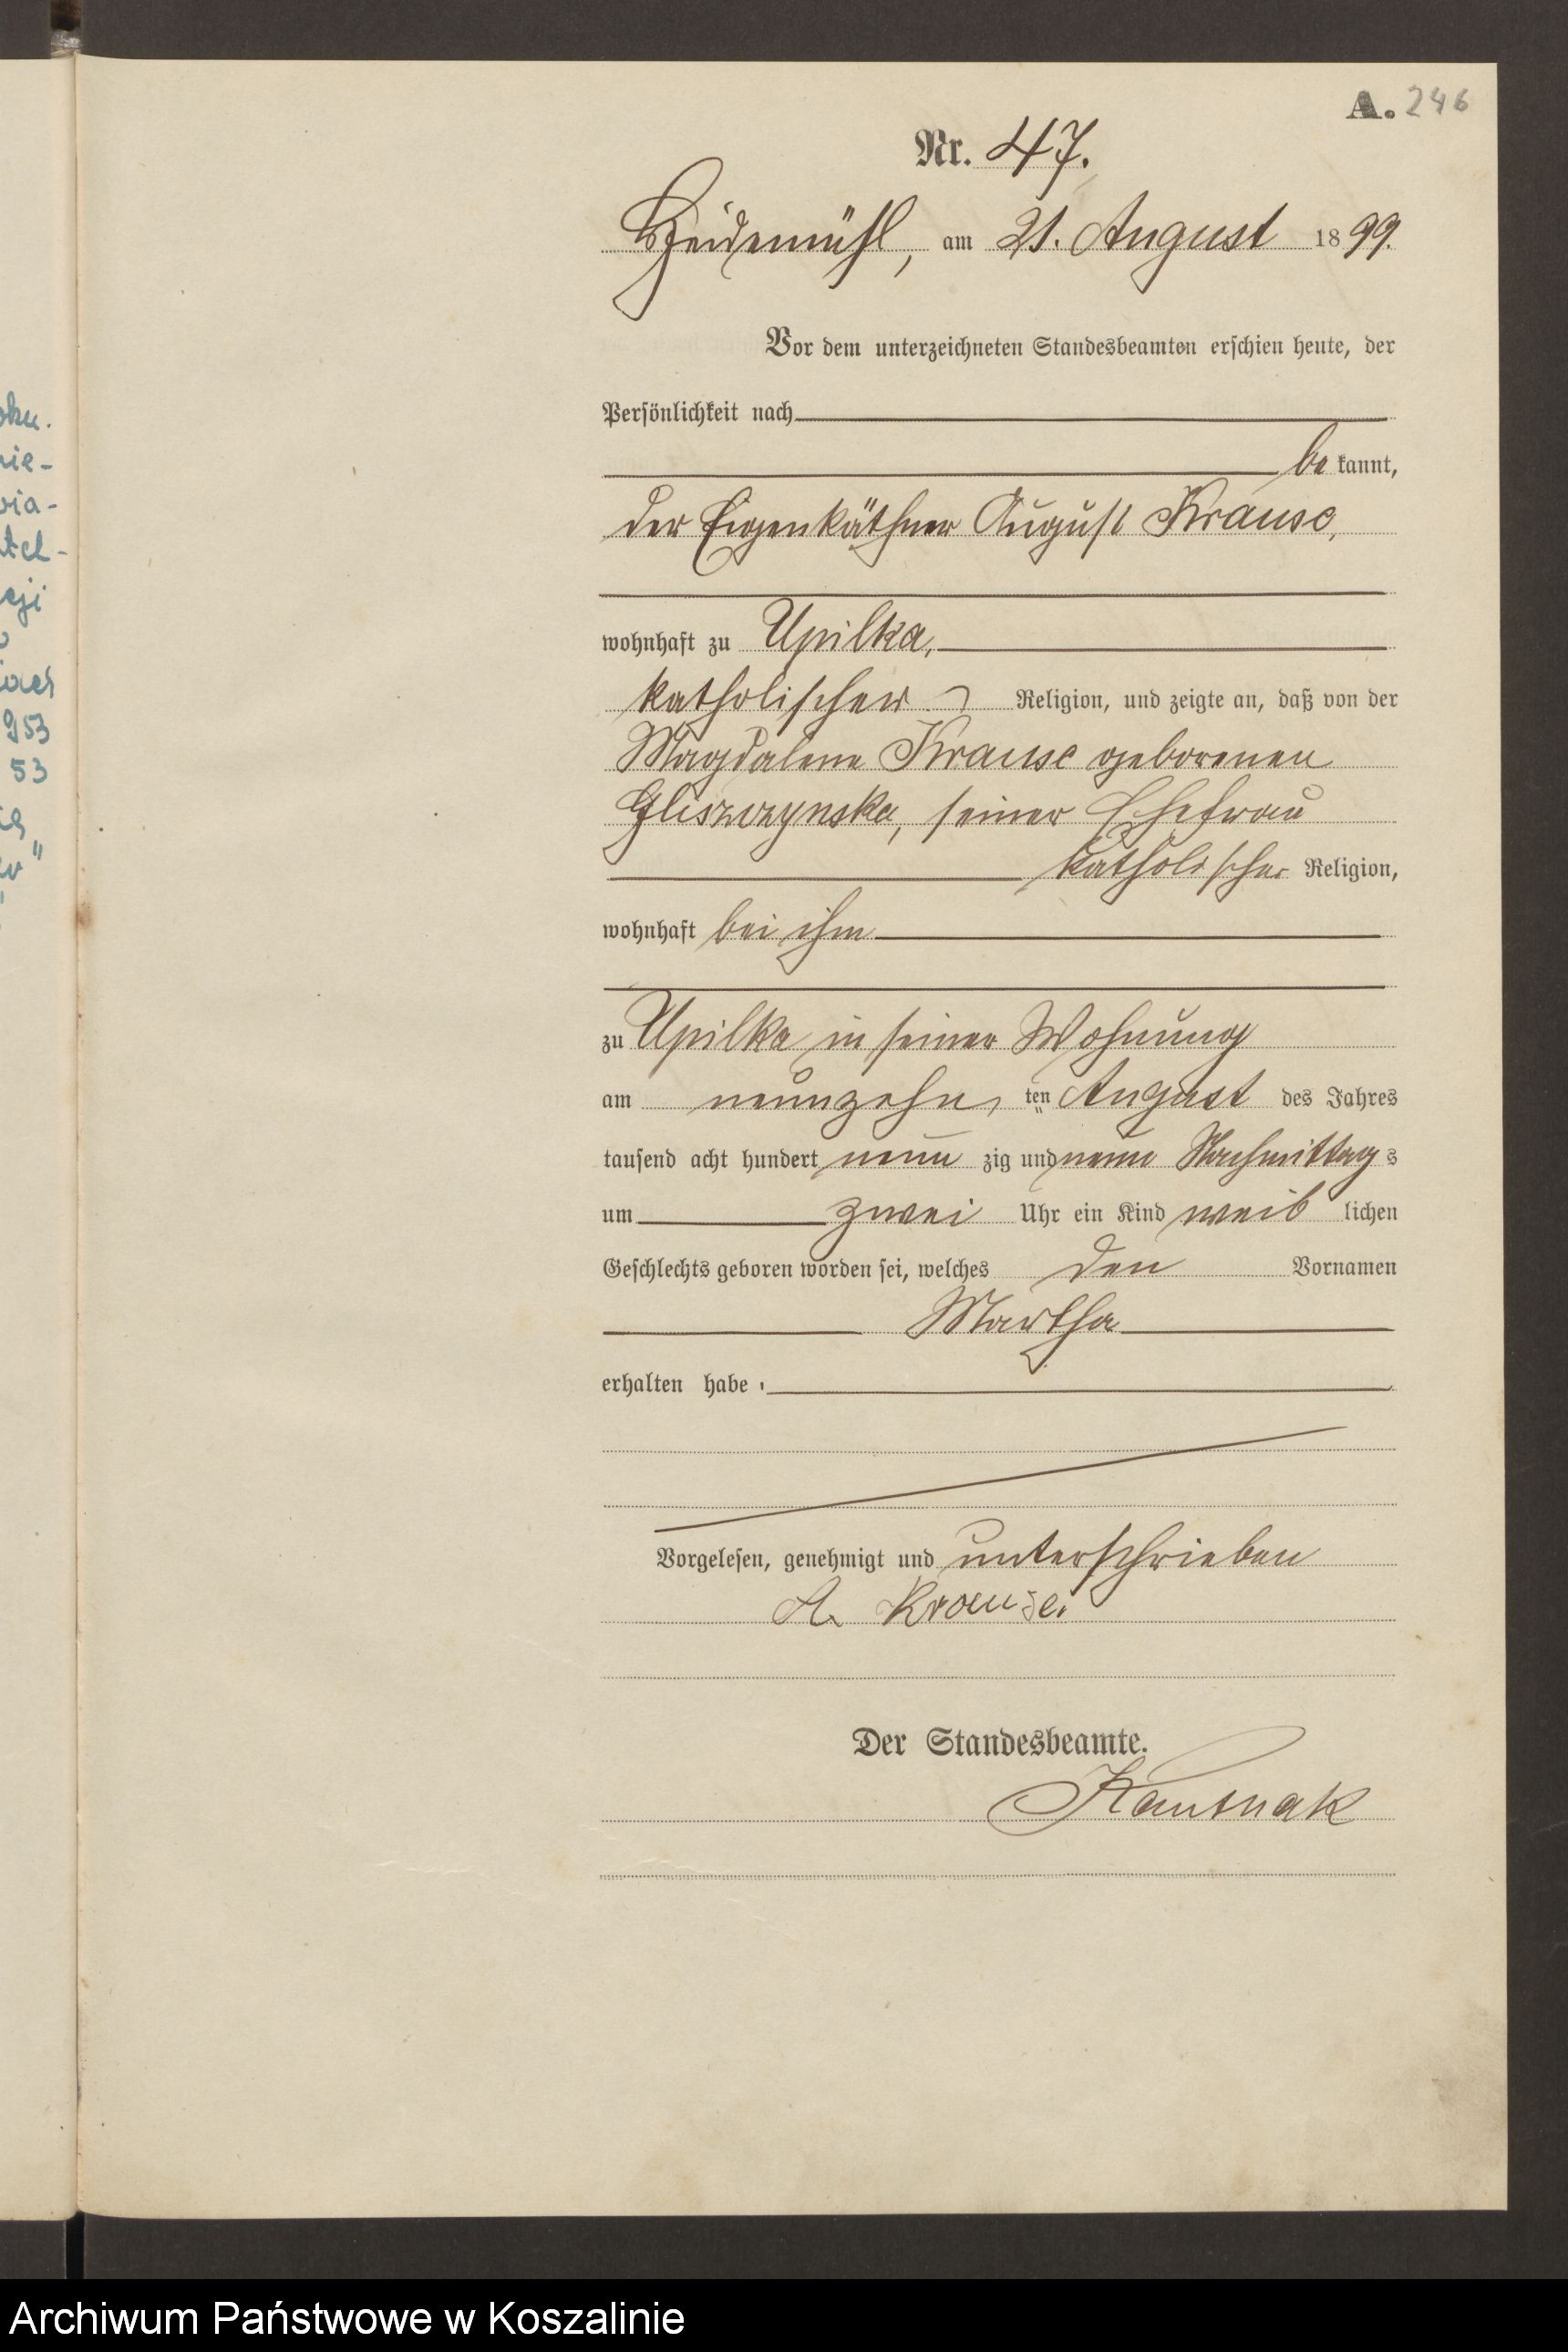 A. 246
Nr. 47.
Heidemühl, am 21. August 1899.
Vor dem unterzeichneten Standesbeamten erschien heute, der
Persönlichkeit nach
be kannt,
der Eigenkäthner August Krause,
wohnhaft zu Upilka,
katholischer Religion, und zeigte an, daß von der
Magdalena Krause geborenen
Gliszczynska, seiner Ehefrau
katholischer Religion,
wohnhaft bei ihm
zu Upilka in seiner Wohnung
am neunzehn ten August des Jahres
tausend acht hundert neun zig und neun Nachmittag s
um zwei Uhr ein Kind weib lichen
Geschlechts geboren worden sei, welches den Vornamen
Martha
erhalten habe.
Vorgelesen, genehmigt und unterschrieben
A. Krause.
Der Standesbeamte.
oku.
nie-
wia-
eji
953
53
Archiwum Państwowe w Koszalinie